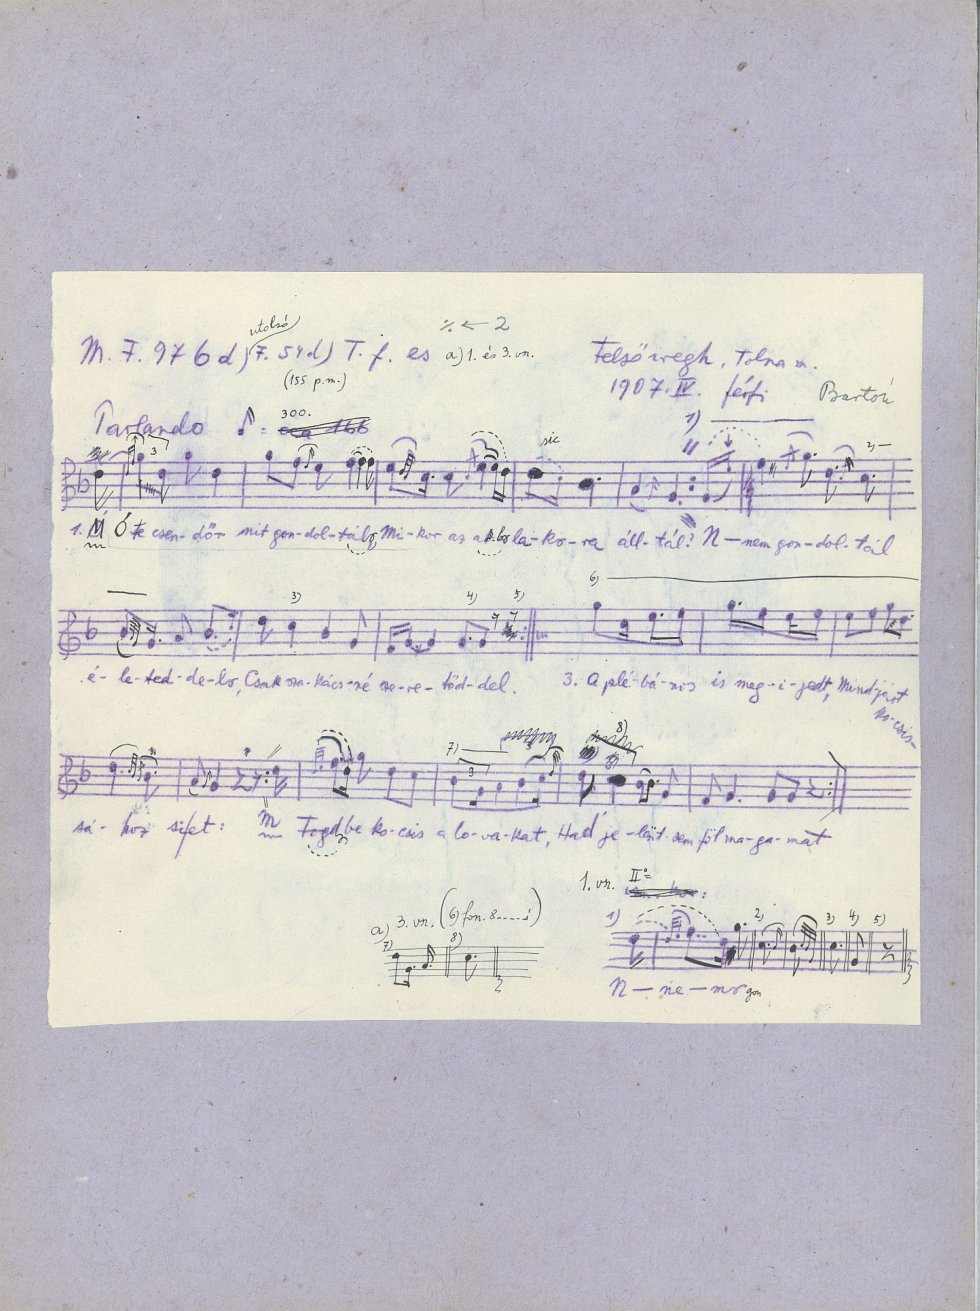 utolsó
% ← 2
M. F. 976 d) F. 54 d) T. f. es a) 1. és 3. vn.
(155 p.m.)
Felsőiregh, Tolna m.
1907. IV. férfi
Bartók
Parlando ♪ = 300. ca 166
1)
3 sic 2)
1. M Ó Te csen-dőr mit gon-dol-tál, Mi-kor az ab-la-ko-ra áll-tál? N-nem gon-dol-tál
6)
3) 4) 5)
é-le-ted-de-lo, Csak sza-kács-né sze-re-tőd-del. 3. A plé-bá-nos is meg-i-jedt, Mind-járt
ko-csis-
7) 3 8)
sá-hoz sijet: m Fogd be ko-csis a lo-va-kat, Had' je-lönt-sem föl ma-ga-mat
1. vn. II°=
a) 3. vn. (6) fon. 8.....)
7) 8)
1) 2) 3) 4) 5)
N-ne-m gon